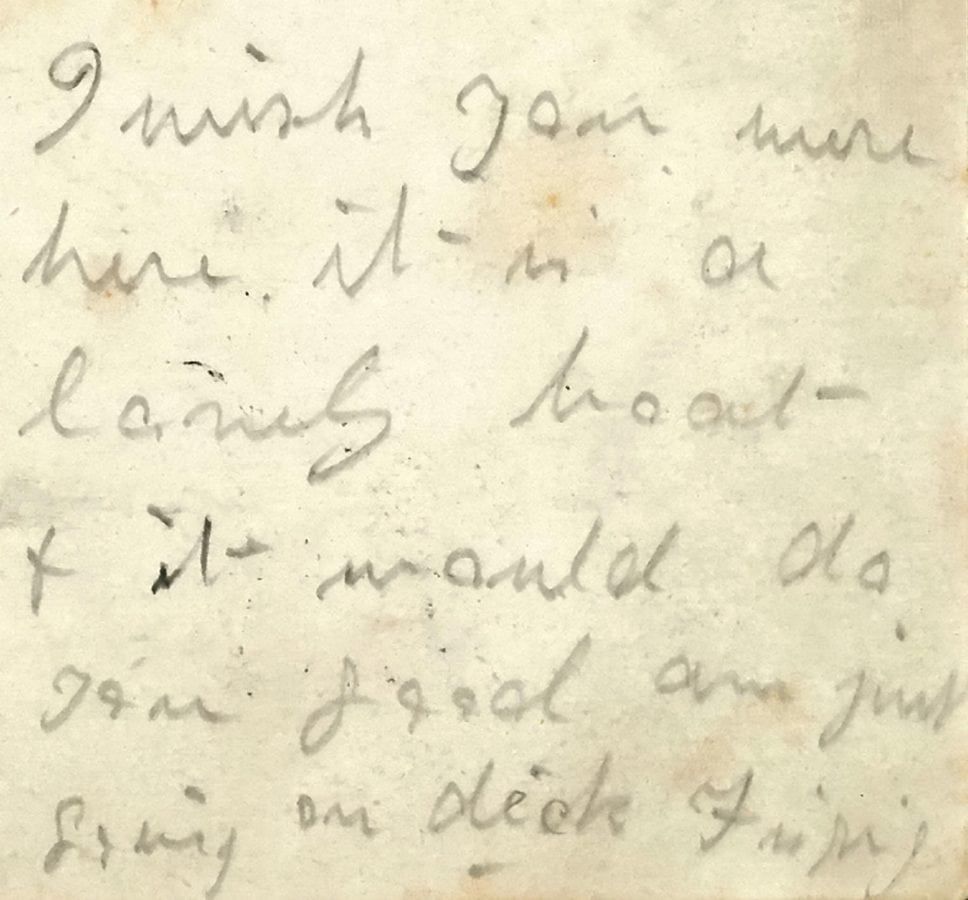 I wish you were
here. it is a
lovely boat
& it would do
you good am just
going on deck